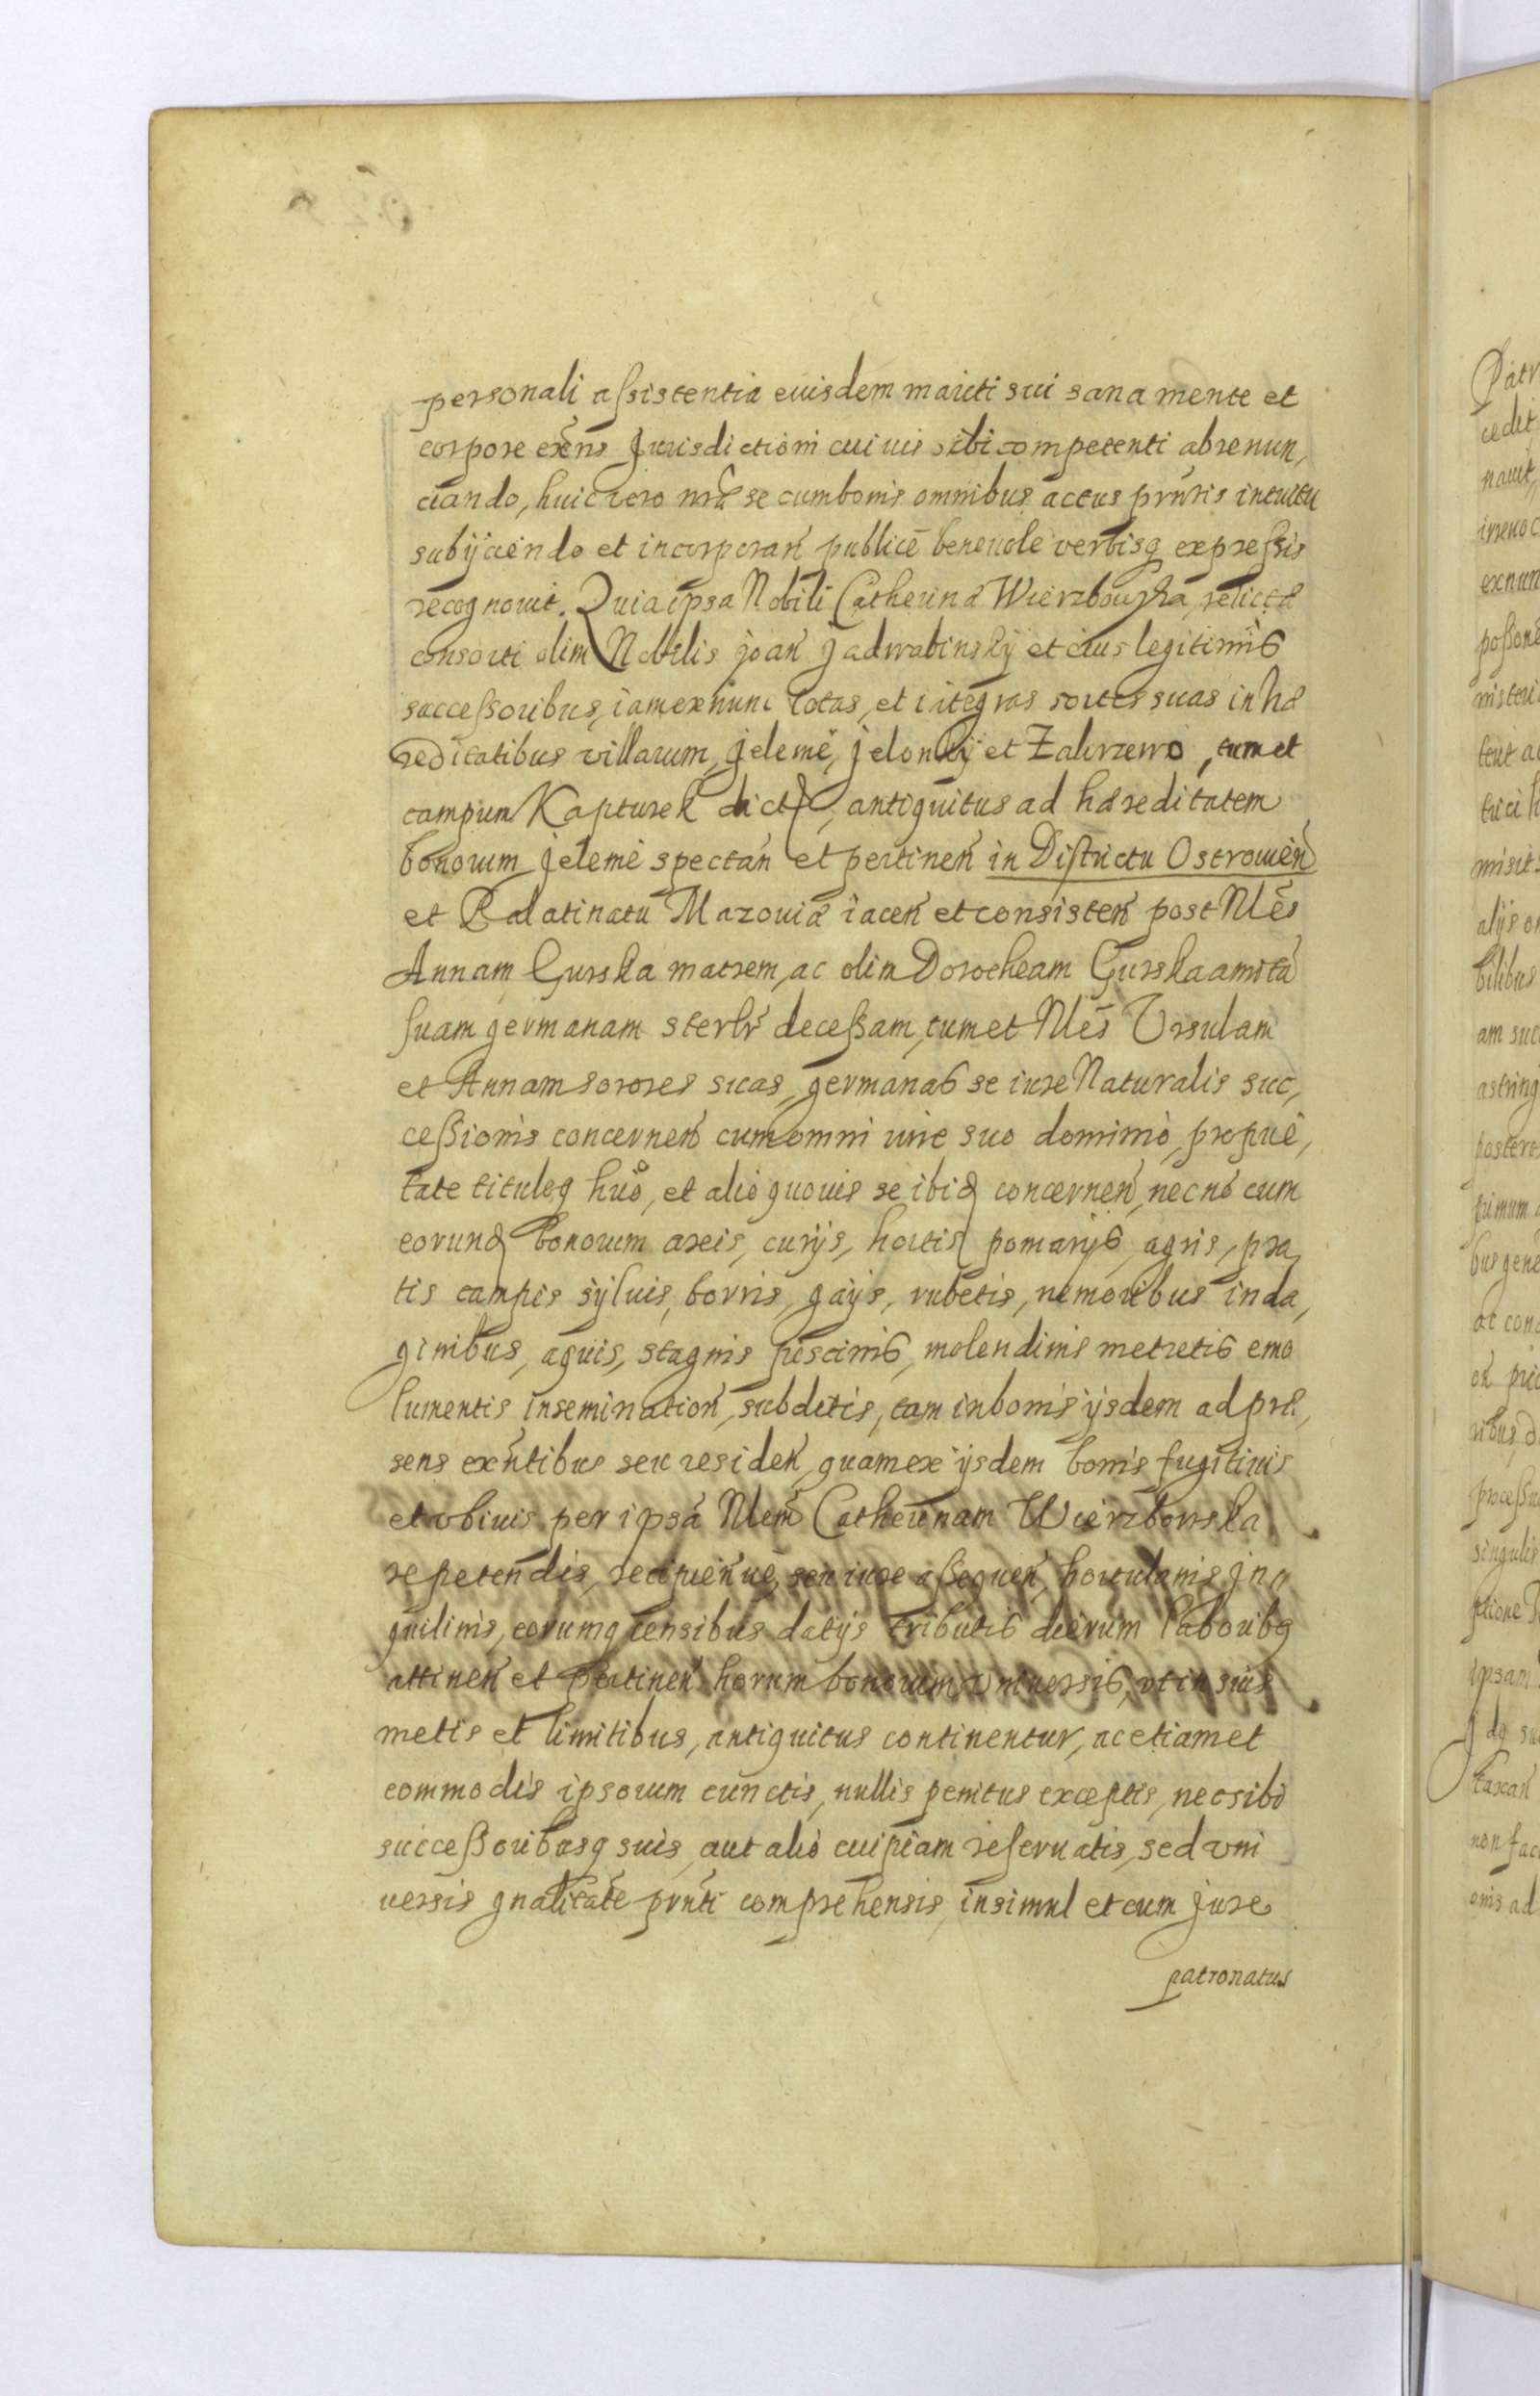 personali assistentia eiusdem mariti sui sana mente et
corpore exens Jurisdictioni cuiuis sibi competenti abrenun,
ciando, huic vero nrae se cum bonis omnibus actus prntis intuitu
subijciendo et incorporan publice beneuole verbisq expressis
recognouit. Quia ipsa Nobili Catherina Wierzbowska, relicta
consorti olim Nobilis Joan Jadwabinskij et eius legitimis
successoribus, iam ex nunc totas, et integras sortes suas in hae
reditatibus villarum, Jeleme, Jelonkij et Zakrzewo, tum et
campum Kapturek dict, antiquitus ad haereditatem
bonorum Jeleme spectan et pertinen in Districtu Ostrouien
et Palatinatu Mazouiae iacen et consisten post Nles
Annam Gurska matrem, ac olim Dorotheam Gurska amita
suam germanam steril decessam, tum et Nles Vrsulam
et Annam sorores suas, germanas se iure Naturalis suc,
cessionis concernen cum omni iure suo dominio, proprie,
tate tituloq huo, et alio quouis se ibid concernen, necno cum
eorund bonorum areis, curijs, hortis pomarijs, agris, pra,
tis campis syluis, borris, gays, rubetis, nemoribus inda,
ginibus, aquis, stagnis piscinis, molendinis metretis emo
lumentis insemination, subditis, tam in bonis ijsdem ad prae,
sens exntibus seu residen, quam ex ijsdem bonis fugitiuis
et vbiuis per ipsa Nlem Catherinam Wierzbowska
repetendis, recipien ue, seu iure assequen, hortulanis Jn,
quilinis, eorumq censibus datijs tributis dierum laboribq
attinen et pertinen horum bonorum vniuersis, vt in suis
metis et limitibus, antiquitus continentur, ac etiam et
commodis ipsorum cunctis, nullis penitus exceptis, nec sibi
successoribusq suis, aut alio cuipiam reseruatis, sed vni
uersis gnalitate prnti comprehensis, insimul et cum jure
patronatus